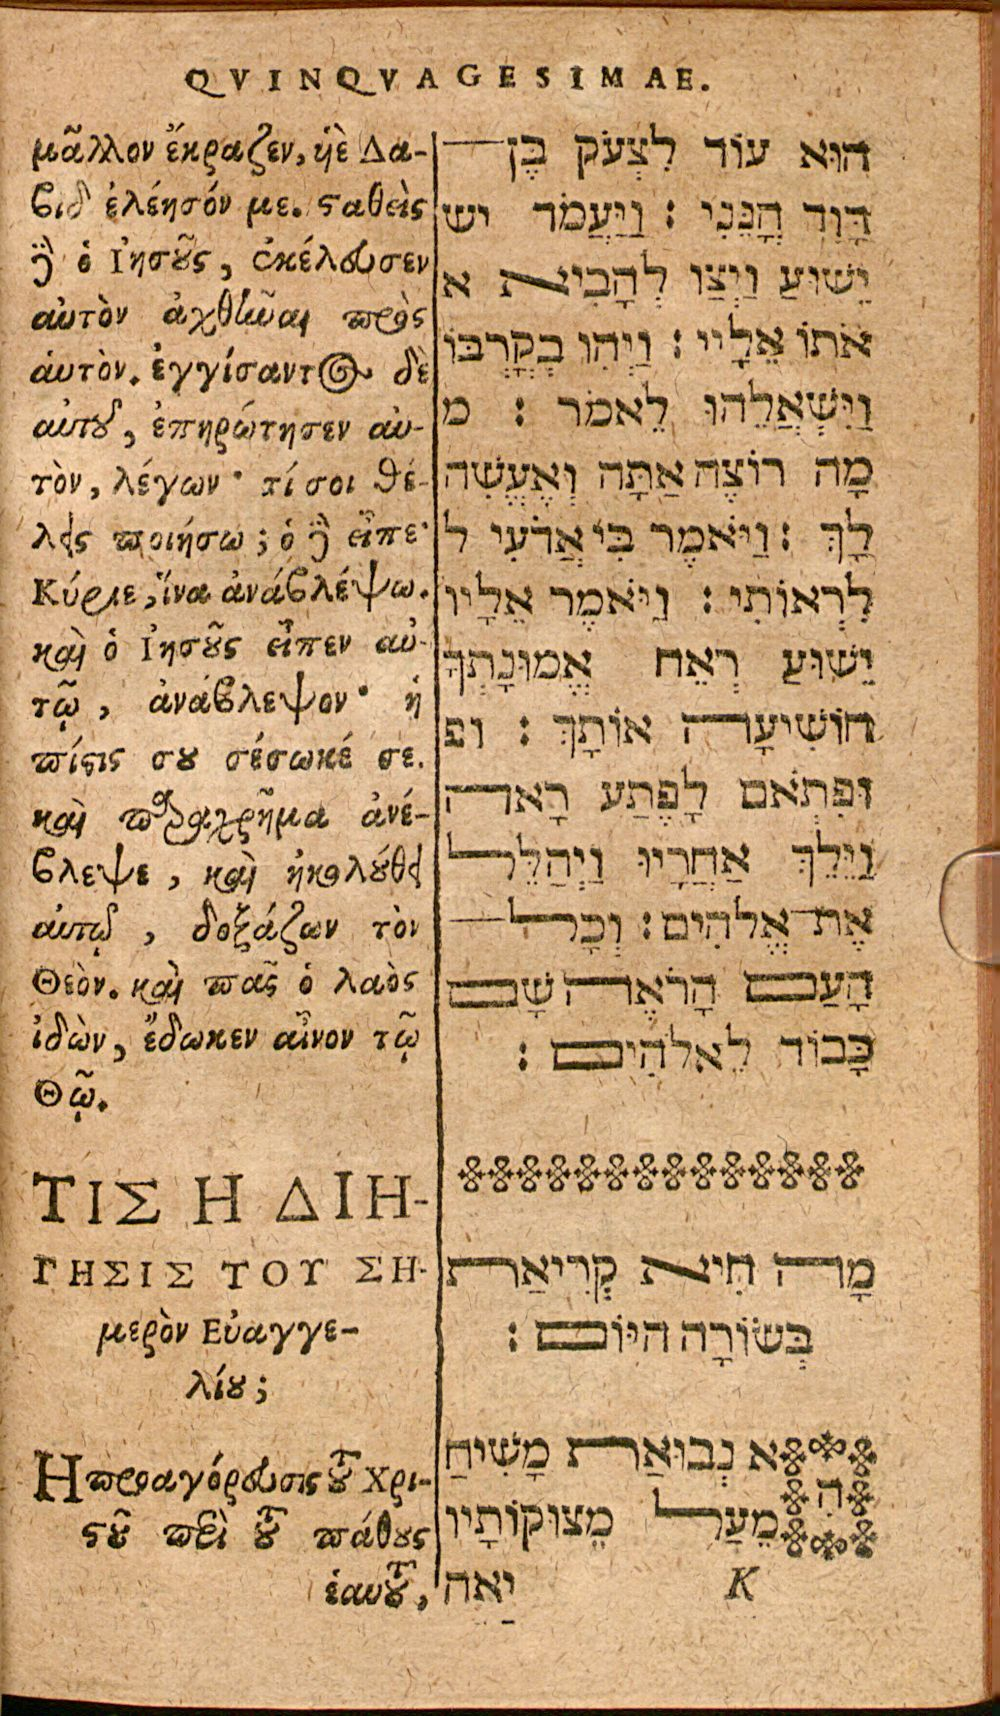 QVINQVAGESIMAE.
μᾶλλον ἔκραζεν, ἱὲ Δα-
βιδ ἐλέησόν με. ςαθεὶς
δὲ ὁ Ἰησοῦς, ἐκέλευσεν
αὐτὸν ἀχθῆναι πρὸς
ἁυτὸν. ἐγγίσαντος δὲ
αὐτοῦ, ἐπηρώτησεν αὐ-
τὸν, λέγων· τί σοι θέ-
λεις ποιήσω; ὁ δὲ εἶπε·
Κύριε, ἵνα ἀνάβλέψω.
καὶ ὁ Ἰησοῦς εἶπεν αὐ-
τῷ, ἀνάβλεψον· ἡ
πίςις σου σέσωκέ σε.
καὶ παραχρῆμα ἀνέ-
βλεψε, καὶ ἠκολούθει
αὐτῷ, δοξάζων τὸν
Θεὸν. καὶ πᾶς ὁ λαὸς
ἰδὼν, ἔδωκεν αἶνον τῷ
Θῷ.
ΤΙΣ Η ΔΙΗ-
ΓΗΣΙΣ ΤΟΥ ΣΗ-
μερὸν Εὐαγγε-
λίου;
Η προαγόρευσις τοῦ Χρι-
ςοῦ περὶ τοῦ πάθους
ἑαυτοῦ,
הוּא עוֹד לִצְעֹק בֶּן
דָּוִד הָנֵּנִי : וַיַּעֲמֹד יש
יֵשׁוּעַ וַיְצַו לְהָבִיא א
אֹתוֹ אֵלָיי : וַיְהִו בְקָרְבּוֹ
וַיִּשְׁאֲלֵהוּ לֵאמֹר : מ
מָה רוֹצֶה אַתָּה וְאֶעֱשֶׂה
לָךְ : וַיֹּאמֶר בִּי אֲדֹנִי ל
לִרְאוֹתִי : וַיֹּאמֶר אֵלָיו
יֵשׁוּעַ רְאֵה אֱמוּנָתְךָ
הוֹשִׁיעָה אוֹתָךְ : ופ
וּפִתְאֹם לָפֶתַע רָאה
וַיֵּלֵךְ אַחֲרָיו וַיְהַלֵּל
אֶת אֱלֹהִים : וְכָל
הָעַם הָרֹאֶה שָׁם
כָּבוֹד לֵאלֹהִים :
מָה הִיא קְרִיאַת
בְּשׂוֹרָה היּוֹם :
הִא נְבוּאַת מָשִׁיחַ
מֵעַל מְצוּקוֹתָיו
יַאה
K